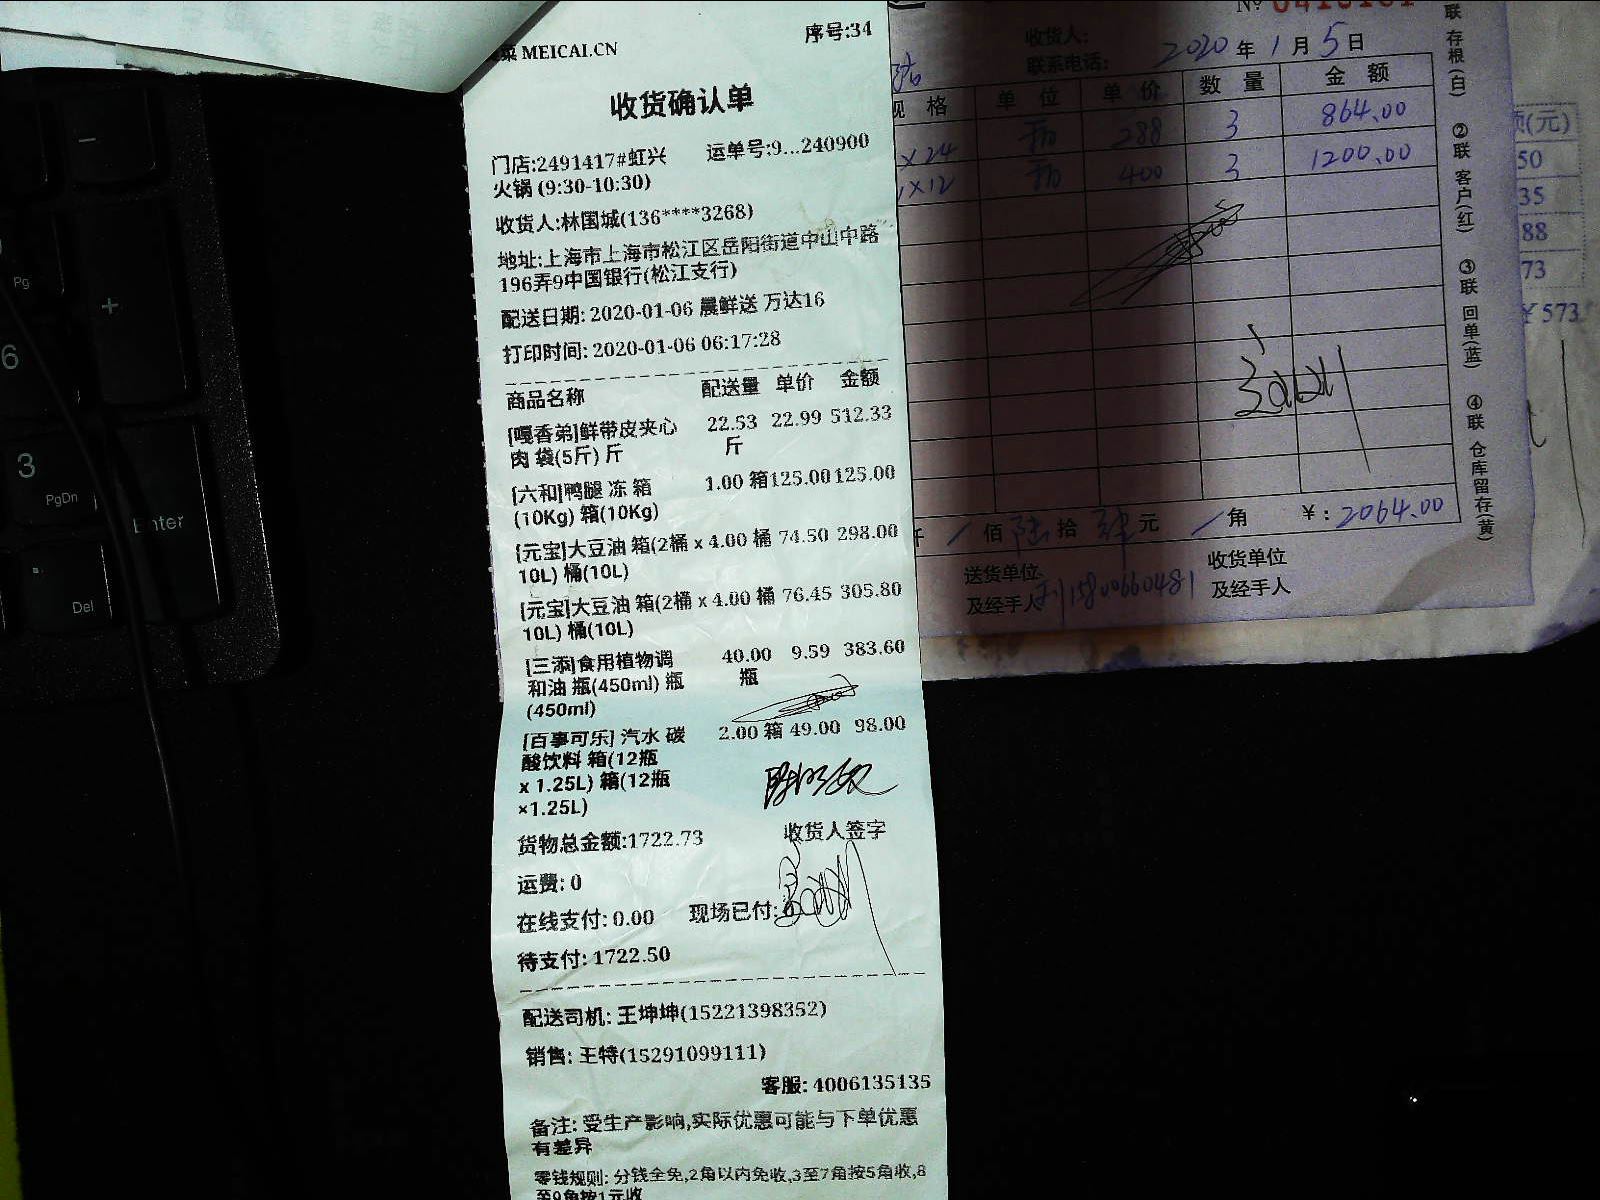 菜 MEICAI.CN
序号:34
收货确认单
门店:2491417#虹兴 运单号:9...240900
火锅 (9:30-10:30)
收货人:林国城(136****3268)
地址:上海市上海市松江区岳阳街道中山中路
196弄9中国银行(松江支行)
配送日期: 2020-01-06 晨鲜送 万达16
打印时间: 2020-01-06 06:17:28
商品名称 配送量 单价 金额
[嘎香弟]鲜带皮夹心 22.53 22.99 512.33
肉 袋(5斤) 斤 斤
[六和]鸭腿 冻 箱 1.00 箱 125.00 125.00
(10Kg) 箱(10Kg)
[元宝]大豆油 箱(2桶 x 4.00 桶 74.50 298.00
10L) 桶(10L)
[元宝]大豆油 箱(2桶 x 4.00 桶 76.45 305.80
10L) 桶(10L)
[三添]食用植物调 40.00 9.59 383.60
和油 瓶(450ml) 瓶 瓶
(450ml)
[百事可乐] 汽水 碳 2.00 箱 49.00 98.00
酸饮料 箱(12瓶
x 1.25L) 箱(12瓶
×1.25L)
货物总金额:1722.73 收货人签字
运费: 0
在线支付: 0.00 现场已付:
待支付: 1722.50
配送司机: 王坤坤(15221398352)
销售: 王特(15291099111)
客服: 4006135135
备注: 受生产影响,实际优惠可能与下单优惠
有差异
零钱规则: 分钱全免,2角以内免收,3至7角按5角收,8
至9角按1元收
收货人:
联系电话:
2020 年 1 月 5 日
规 格 单 位 单 价 数 量 金 额
×24 瓶 288 3 864.00
1×12 瓶 400 3 1200.00
仟 / 佰 陆 拾 肆 元 / 角 ¥: 2064.00
送货单位 收货单位
及经手人 15800660481 及经手人
联 存根(白) ②联 客户(红) ③联 回单(蓝) ④联 仓库留存(黄)
额(元)
50
35
88
73
¥573
6
3
Pg
PgDn
+
Enter
Del